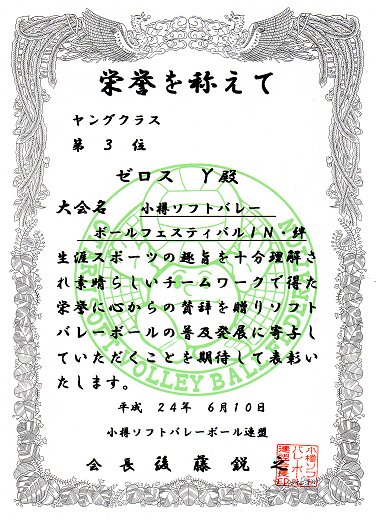 栄誉を称えて
ヤングクラス
第 3 位
ゼロス Y殿
大会名 小樽ソフトバレー
ボールフェスティバルIN・絆
生涯スポーツの趣旨を十分理解さ
れ素晴らしいチームワークで得た
栄誉に心からの賛辞を贈りソフト
バレーボールの普及発展に寄与し
ていただくことを期待して表彰い
たします。
平成 24年 6月10日
小樽ソフトバレーボール連盟
会長 後藤鋭之